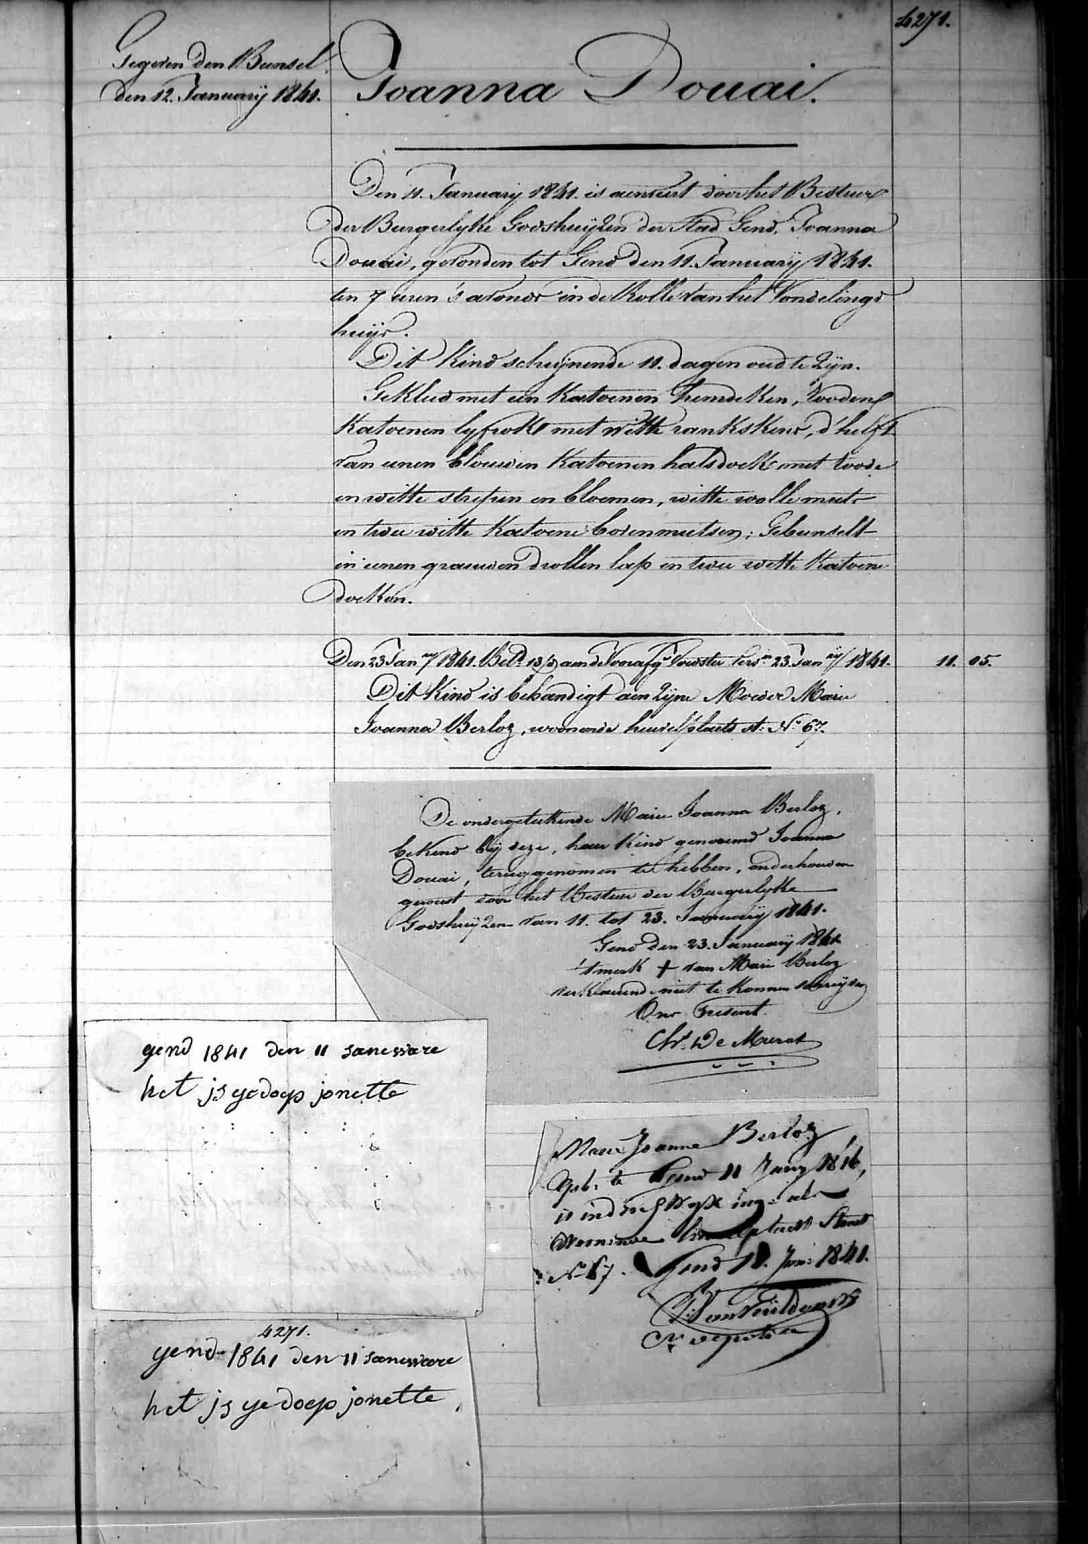 4271.
Gegeven den Bunsel
den 12. January 1841.
Joanna Douai.
Den 11. January 1841. is aenveert door het Bestuer
der Burgerlyke Godshuijzen der Stad Gend, Joanna
Douai, gevonden tot Gend den 11. January 1841.
ten 7 uren 's avonds in de Rolle van het Vondelings
huijs.
Dit kind schijnende 11. dagen oud te zijn.
Gekleed met een Katoenen hemdeken, rooden
Katoenen lyfrokt met witte rankskens, d'helft
van eenen blauwen Katoenen halsdoek met roode
en witte strepen en bloemen, witte wolle muts
en twee witte Katoene bovenmutsen; Gebunselt
in eenen graeuwen drollen lap en twee witte Katoene
doeken.
Den 23 Jan.ry 1841. aen de Voorsz. Voedster 23. Jan.ry 1841. 11. 05.
Dit kind is behandigt aen zyne Moeder Marie
Joanna Berloz, woonende heuvelplaets st. N.o 67.
De ondergeteekende Marie Joanna Berloz,
bekend by deze, haer kind genaemd Joanna
Douai, terug genomen te hebben, onderhouden
geweest door het Bestuer der Burgerlyke
Godshuijzen van 11. tot 23. January 1841.
Gend den 23. January 1841.
't merk + van Marie Berloz
verklarend niet te konnen schrijven
Ons Present.
Chs. De Meerst
gend 1841 den 11 saneware
het js ye doep jonette
Marie Joanne Berloz
Geb. te Gend 11 Jany 1816,
is in als
woonende Straet
N.o 67. Gend 18. Jan: 1841.
4271.
yend 1841 den 11 sanewaare
het js ye doep jonette